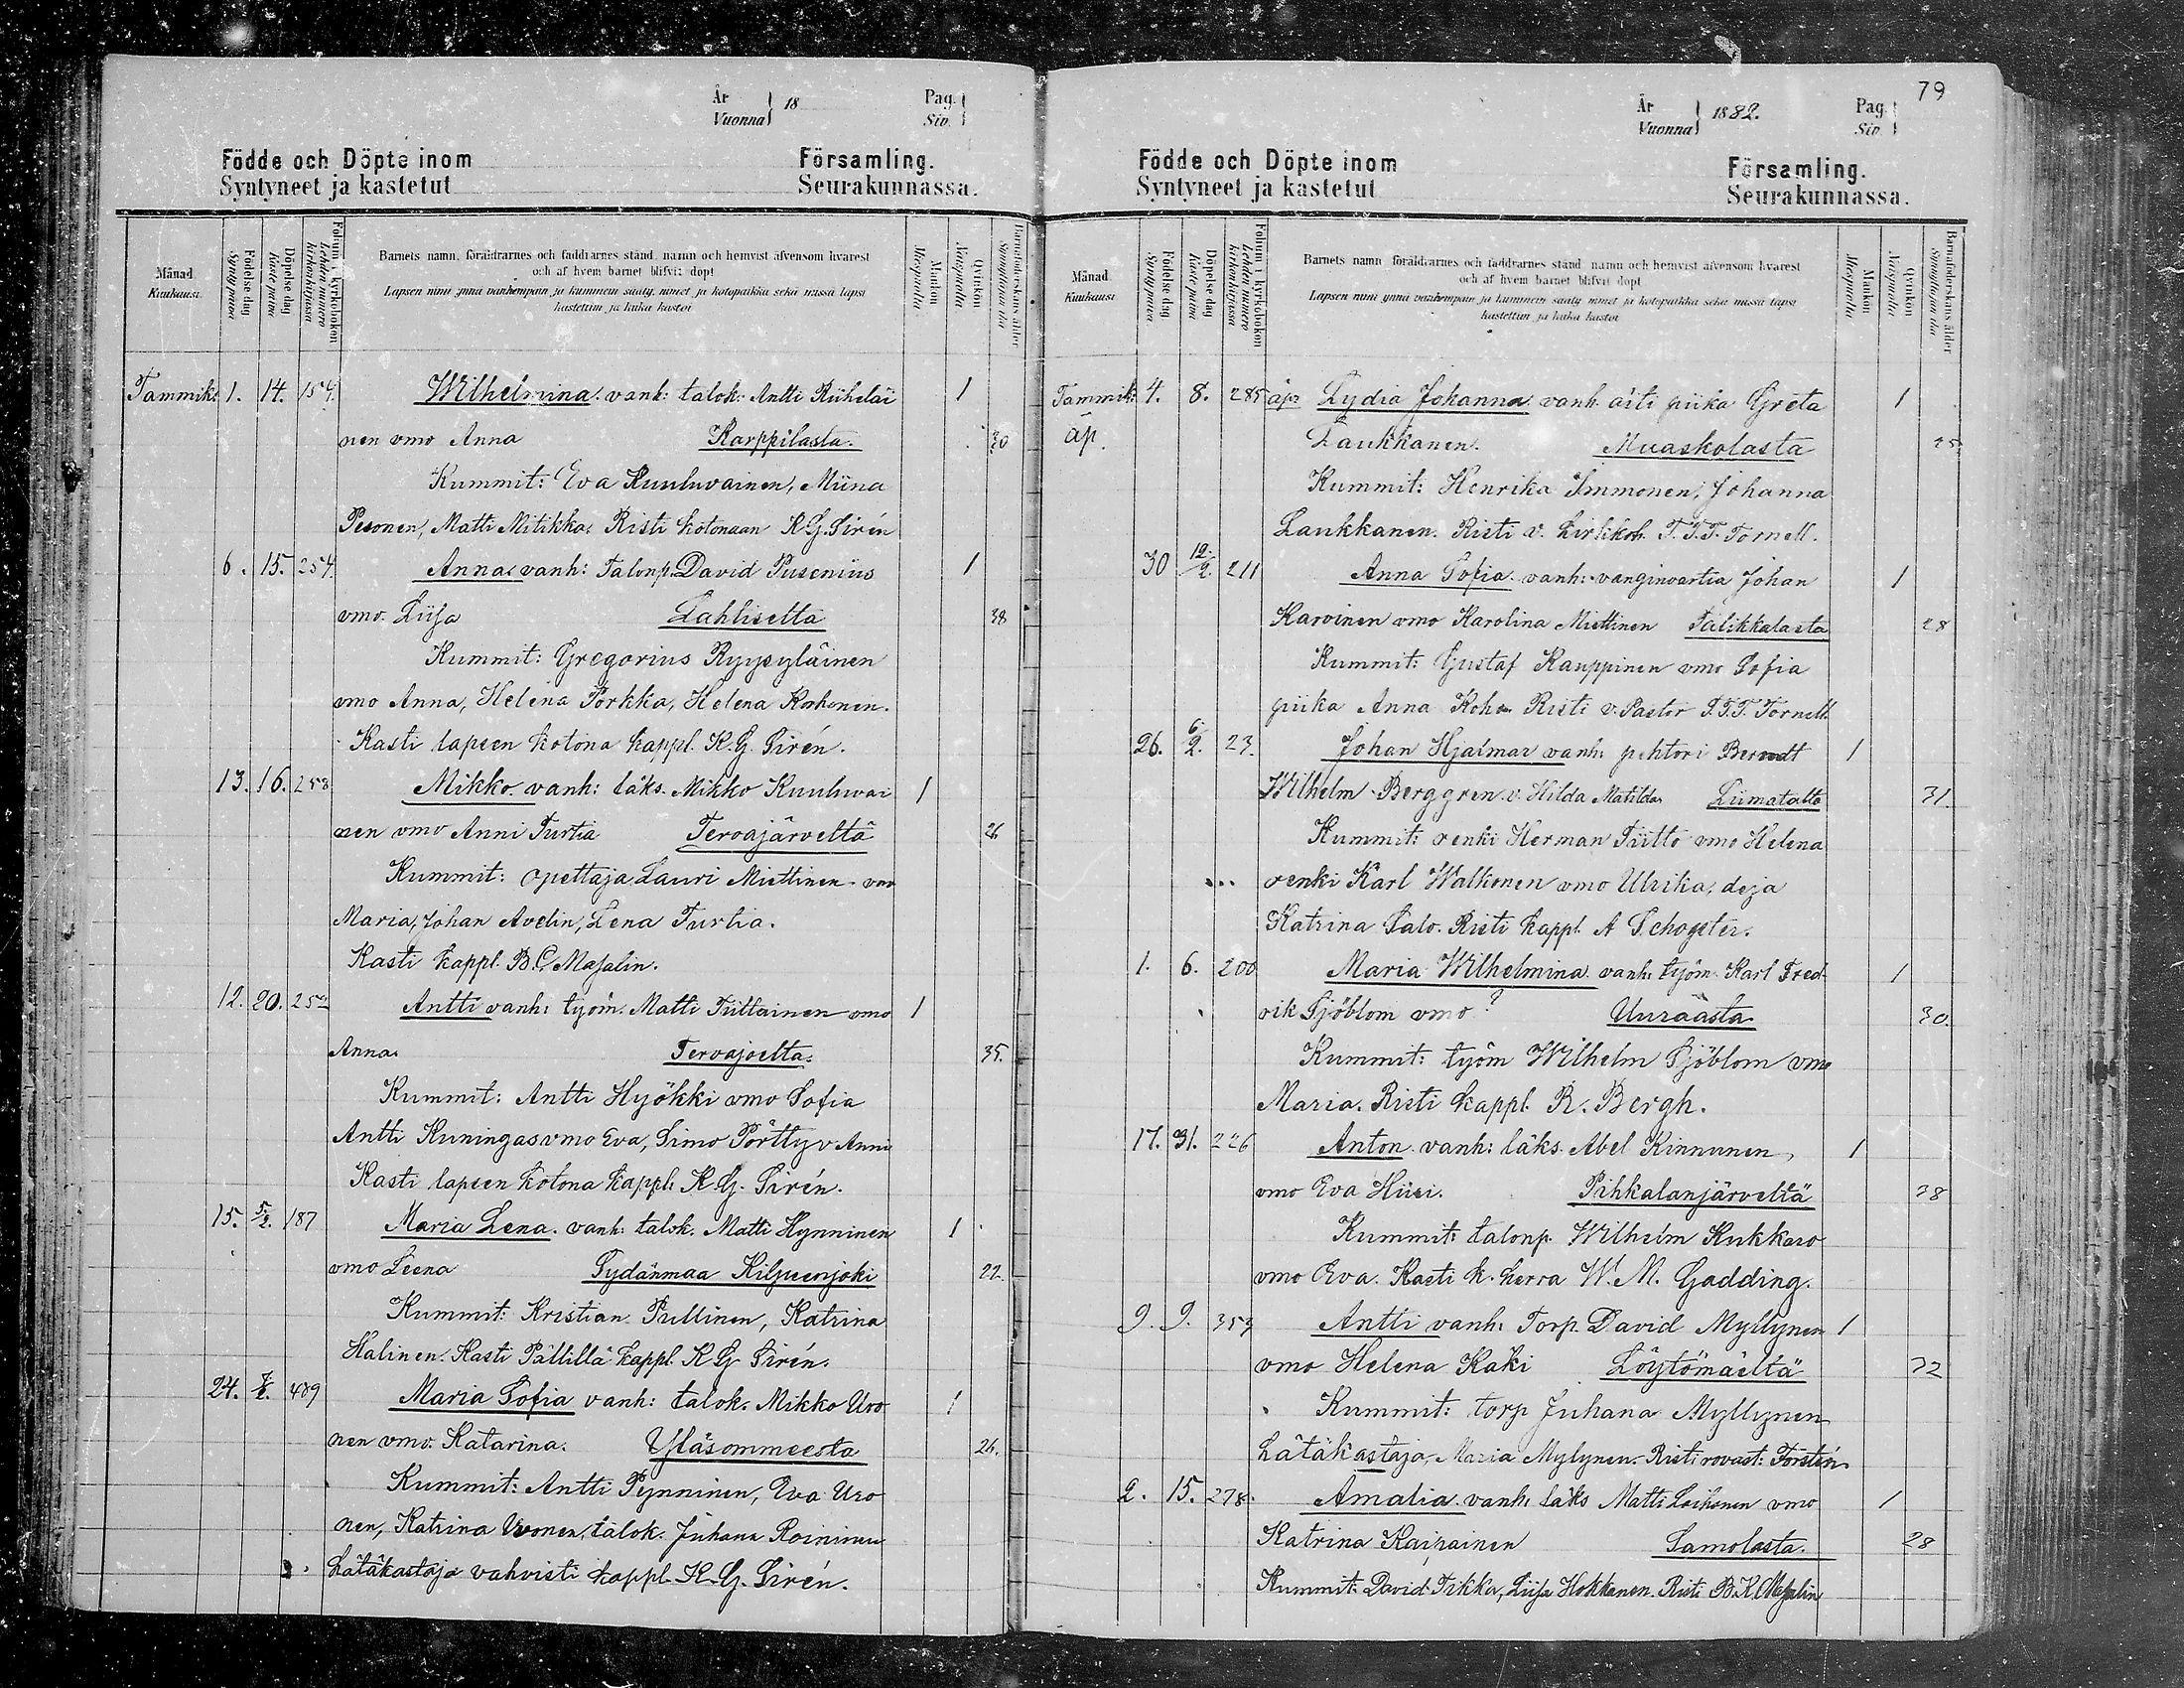 År
Vuonna } 18
Pag.
Siv. }
Födde och Döpte inom Församling.
Syntyneet ja kastetut Seurakunnassa.
Månad
Kuukausi.
Födelse dag
Syntypäivä
Döpelse dag
Kaste päivä
Folium i kyrkoboken
Lehden numero kirkonkirjassa
Barnets namn, föräldrarnes och faddrarnes stånd, namn och hemvist äfvensom hvarest
och af hvem barnet blifvit döpt
Lapsen nimi ynnä vanhempain ja kummein sääty, nimet ja kotopaikka sekä missä lapsi
kastettiin ja kuka kastoi
Mankön
Miespuolta
Qvinkön
Naispuolta
Barnaföderskans ålder
Synnyttäjän ikä
Tammik. 1. 14. 154. Wilhelmina. vanh: talok: Antti Riiheläi 1
nen vmo Anna Karppilasta. 30
Kummit: Eva Kuuluvainen, Miina
Pesonen, Matti Mitikka. Risti kotonaan K G. Sirén
6. 15. 254. Anna. vanh: Talonp. David Pusenius 1
vmo. Liisa Lahlisetta 38
Kummit: Gregorius Ryysyläinen
vmo Anna, Helena Porkka, Helena Korhonen.
Kasti lapsen kotona kappl. K. G. Sirén.
13. 16. 258 Mikko. vanh: läks. Mikko Kuuluvai 1
nen vmo Anni Turtia Tervajärveltä 26
Kummit: opettaja Lauri Miettinen vmo
Maria, Johan Avelin, Lena Turtia.
Kasti kappl. B. C. Masalin.
12. 20. 252 Antti vanh: työm. Matti Tiittainen vmo 1
Anna. Tervajoelta. 35.
Kummit: Antti Hyökki vmo Sofia
Antti Kuningas vmo Eva, Simo Pörtty v Anni
Kasti lapsen kotona kappl. K. G. Sirén.
15. 5/2. 187 Maria Lena. vanh: talok. Matti Hynninen 1
vmo Leena Sydänmaa Kilpeenjoki 22.
Kummit: Kristian Pullinen, Katrina
Halinen. Kasti Pällillä kappl. K G Sirén.
24. 489 Maria Sofia vanh: talok. Mikko Uro 1
nen vmo. Katarina. Yläsommeesta 26.
Kummit: Antti Pynninen, Eva Uro
nen, Katrina Uronen, talok. Juhana Roininen
hätäkastaja vahvisti kappl. K. G. Sirén.
79
År
Vuonna } 1882.
Pag.
Siv. }
Födde och Döpte inom Församling.
Syntyneet ja kastetut Seurakunnassa.
Månad
Kuukausi
Födelse dag
Syntypäivä
Döpelse dag
Kaste päivä
Folium i kyrkoboken
Lehden numero kirkonkirjassa
Barnets namn föräldrarnes och faddrarnes stånd namn och hemvist äfvensom hvarest
och af hvem barnet blifvit döpt
Lapsen nimi ynnä vanhempain ja kummein sääty nimet ja kotopaikka sekä missä lapsi
kastettiin ja kuka kastoi
Mankön
Miespuolta
Qvinkön
Naispuolta
Barnaföderskans ålder
Synnyttäjän ikä
Tammik. 4. 8. 285 äp. Lydia Johanna. vanh. äiti piika Greta 1
äp. Laukkanen. Muaskolasta 25
Kummit: Henrika Immonen, Johanna
Laukkanen. Risti v. kirkkoh. T. T. F. Tornell.
30 12/2. 211 Anna Sofia. vanh: vanginvartia Johan 1
Karvinen vmo Karolina Miettinen Talikkalasta 28
Kummit: Gustaf Kauppinen vmo Sofia
piika Anna Koho. Risti v. Pastor T. T. F. Tornell.
26. 6/2. 23. Johan Hjalmar vanh: pehtori Berndt 1
Wilhelm Berggren v. Hilda Matilda Liimatalta 31.
Kummit: renki Herman Tiitto vmo Helena
renki Karl Walkonen vmo Ulrika, deja
Katrina Salo. Risti kappl. A Schogster.
1. 6. 200 Maria Wilhelmina vanh: työm. Karl Fred- 1
rik Sjöblom vmo ? Uuräästa 30.
Kummit: työm Wilhelm Sjöblom vmo
Maria. Risti kappl. R. Bergh.
17. 31. 226 Anton. vanh: läks. Abel Kinnunen, 1
vmo Eva Hiiri. Pihkalanjärveltä 38
Kummit: talonp. Wilhelm Kukkaro
vmo Eva. Kasti k. herra W. M. Gadding.
9. 9. 353 Antti vanh: Torp. David Myllynen 1
vmo Helena Käki Löytömäeltä 32
Kummit: torp Juhana Myllynen
hätäkastaja, Maria Mylynen. Risti rovast: Forstén
2. 15. 278. Amalia vanh: läks Matti Loihonen vmo 1
Katrina Kaipainen Samolasta. 28
Kummit: David Tikka, Liisa Hokkanen. Risti B. K. Masalin